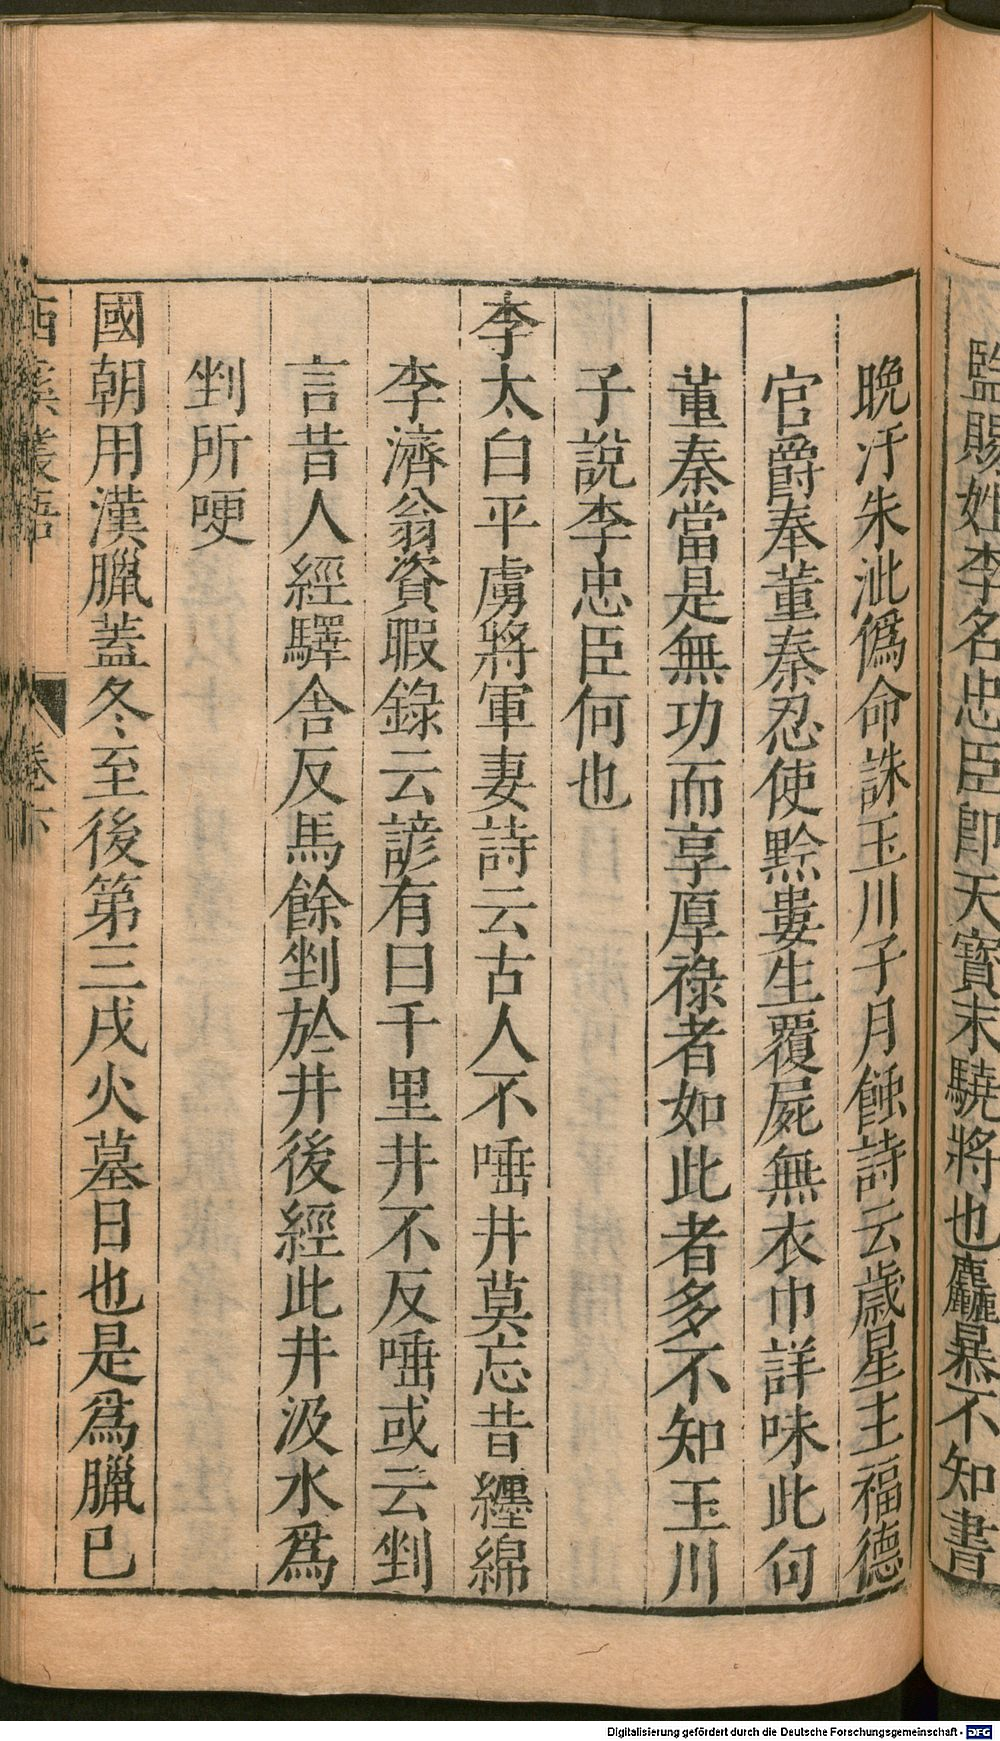 監賜姓李名忠臣卽天寶末驍將也麤暴不知書
晚汙朱泚僞命誅玉川子月蝕詩云歲星主福德
官爵奉董秦忍使黔婁生覆屍無衣巾詳味此句
董秦當是無功而享厚祿者如此者多不知玉川
子說李忠臣何也
李太白平虜將軍妻詩云古人不唾井莫忘昔纏綿
李濟翁資暇錄云諺有曰千里井不反唾或云剉
言昔人經驛舍反馬餘剉於井後經此井汲水爲
剉所哽
國朝用漢臘蓋冬至後第三戌火墓日也是爲臘已
西溪叢語
卷六
十七
Digitalisierung gefördert durch die Deutsche Forschungsgemeinschaft - DFG